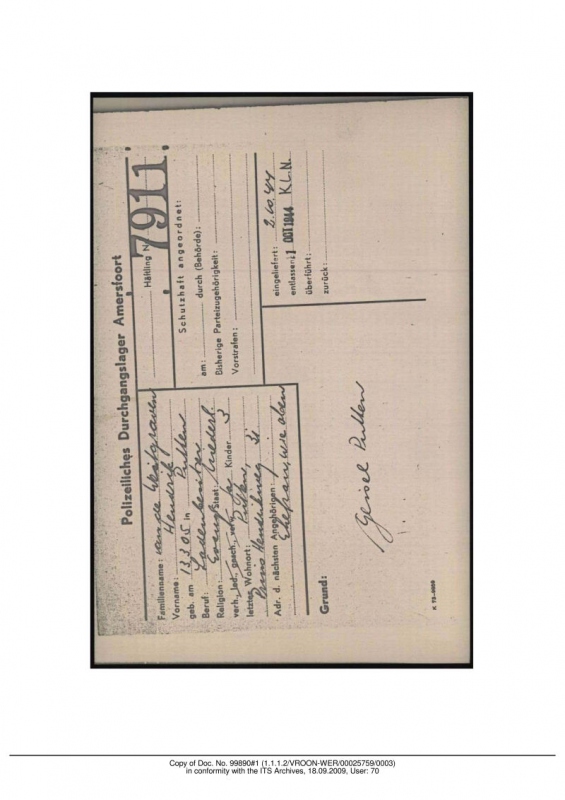 Polizeiliches Durchgangslager Amersfoort
Familienname: van de Weitgraven
Vorname: Hendrik
geb. am 13 3 05 in Putten
Beruf: Ladenbesitzer
Religion: Evang. Staat: Niederl.
verh., led. gesch., verw. Kinder 3
letzter Wohnort: Putten,
Prins Hendrikweg 31
Adr. d. nächsten Angehörigen:
Ehefrau, wie oben
Häftling N 7911
Schutzhaft angeordnet:
am: durch (Behörde):
Bisherige Parteizugehörigkeit:
Vorstrafen:
eingeliefert: 2.10.44
entlassen: 1 OOT 1944 K.L.N.
überführt:
zurück:
Grund:
Geisel Putten
Copy of Doc. No. 99890#1 (1.1.1.2/VROON-WER/00025759/0003)
in conformity with the ITS Archives, 18.09.2009, User: 70